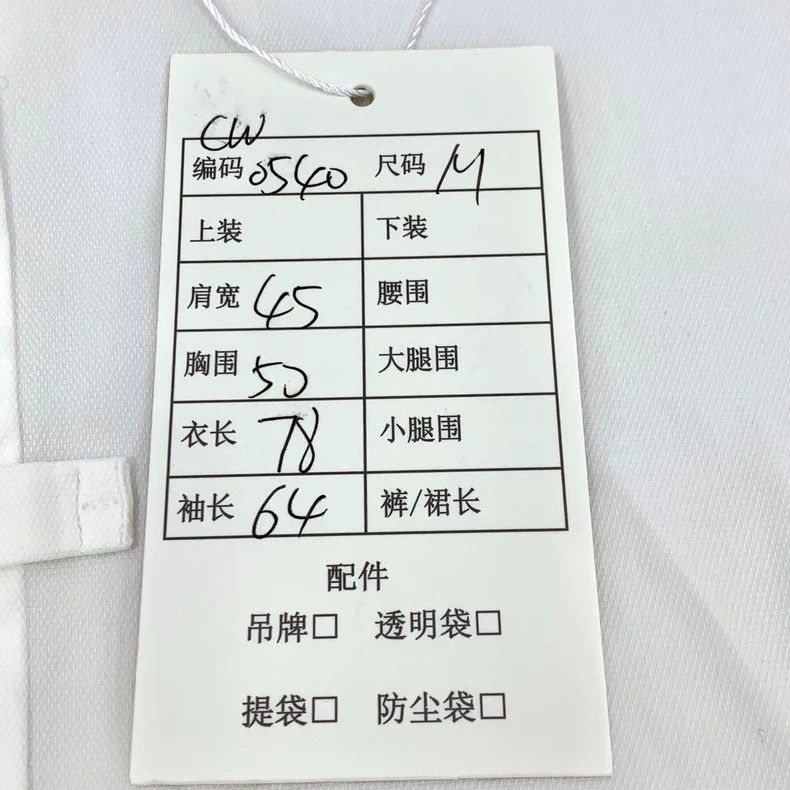 CW
编码 0540 尺码 M
上装 下装
肩宽 45 腰围
胸围 50 大腿围
衣长 78 小腿围
袖长 64 裤/裙长
配件
吊牌□ 透明袋□
提袋□ 防尘袋□